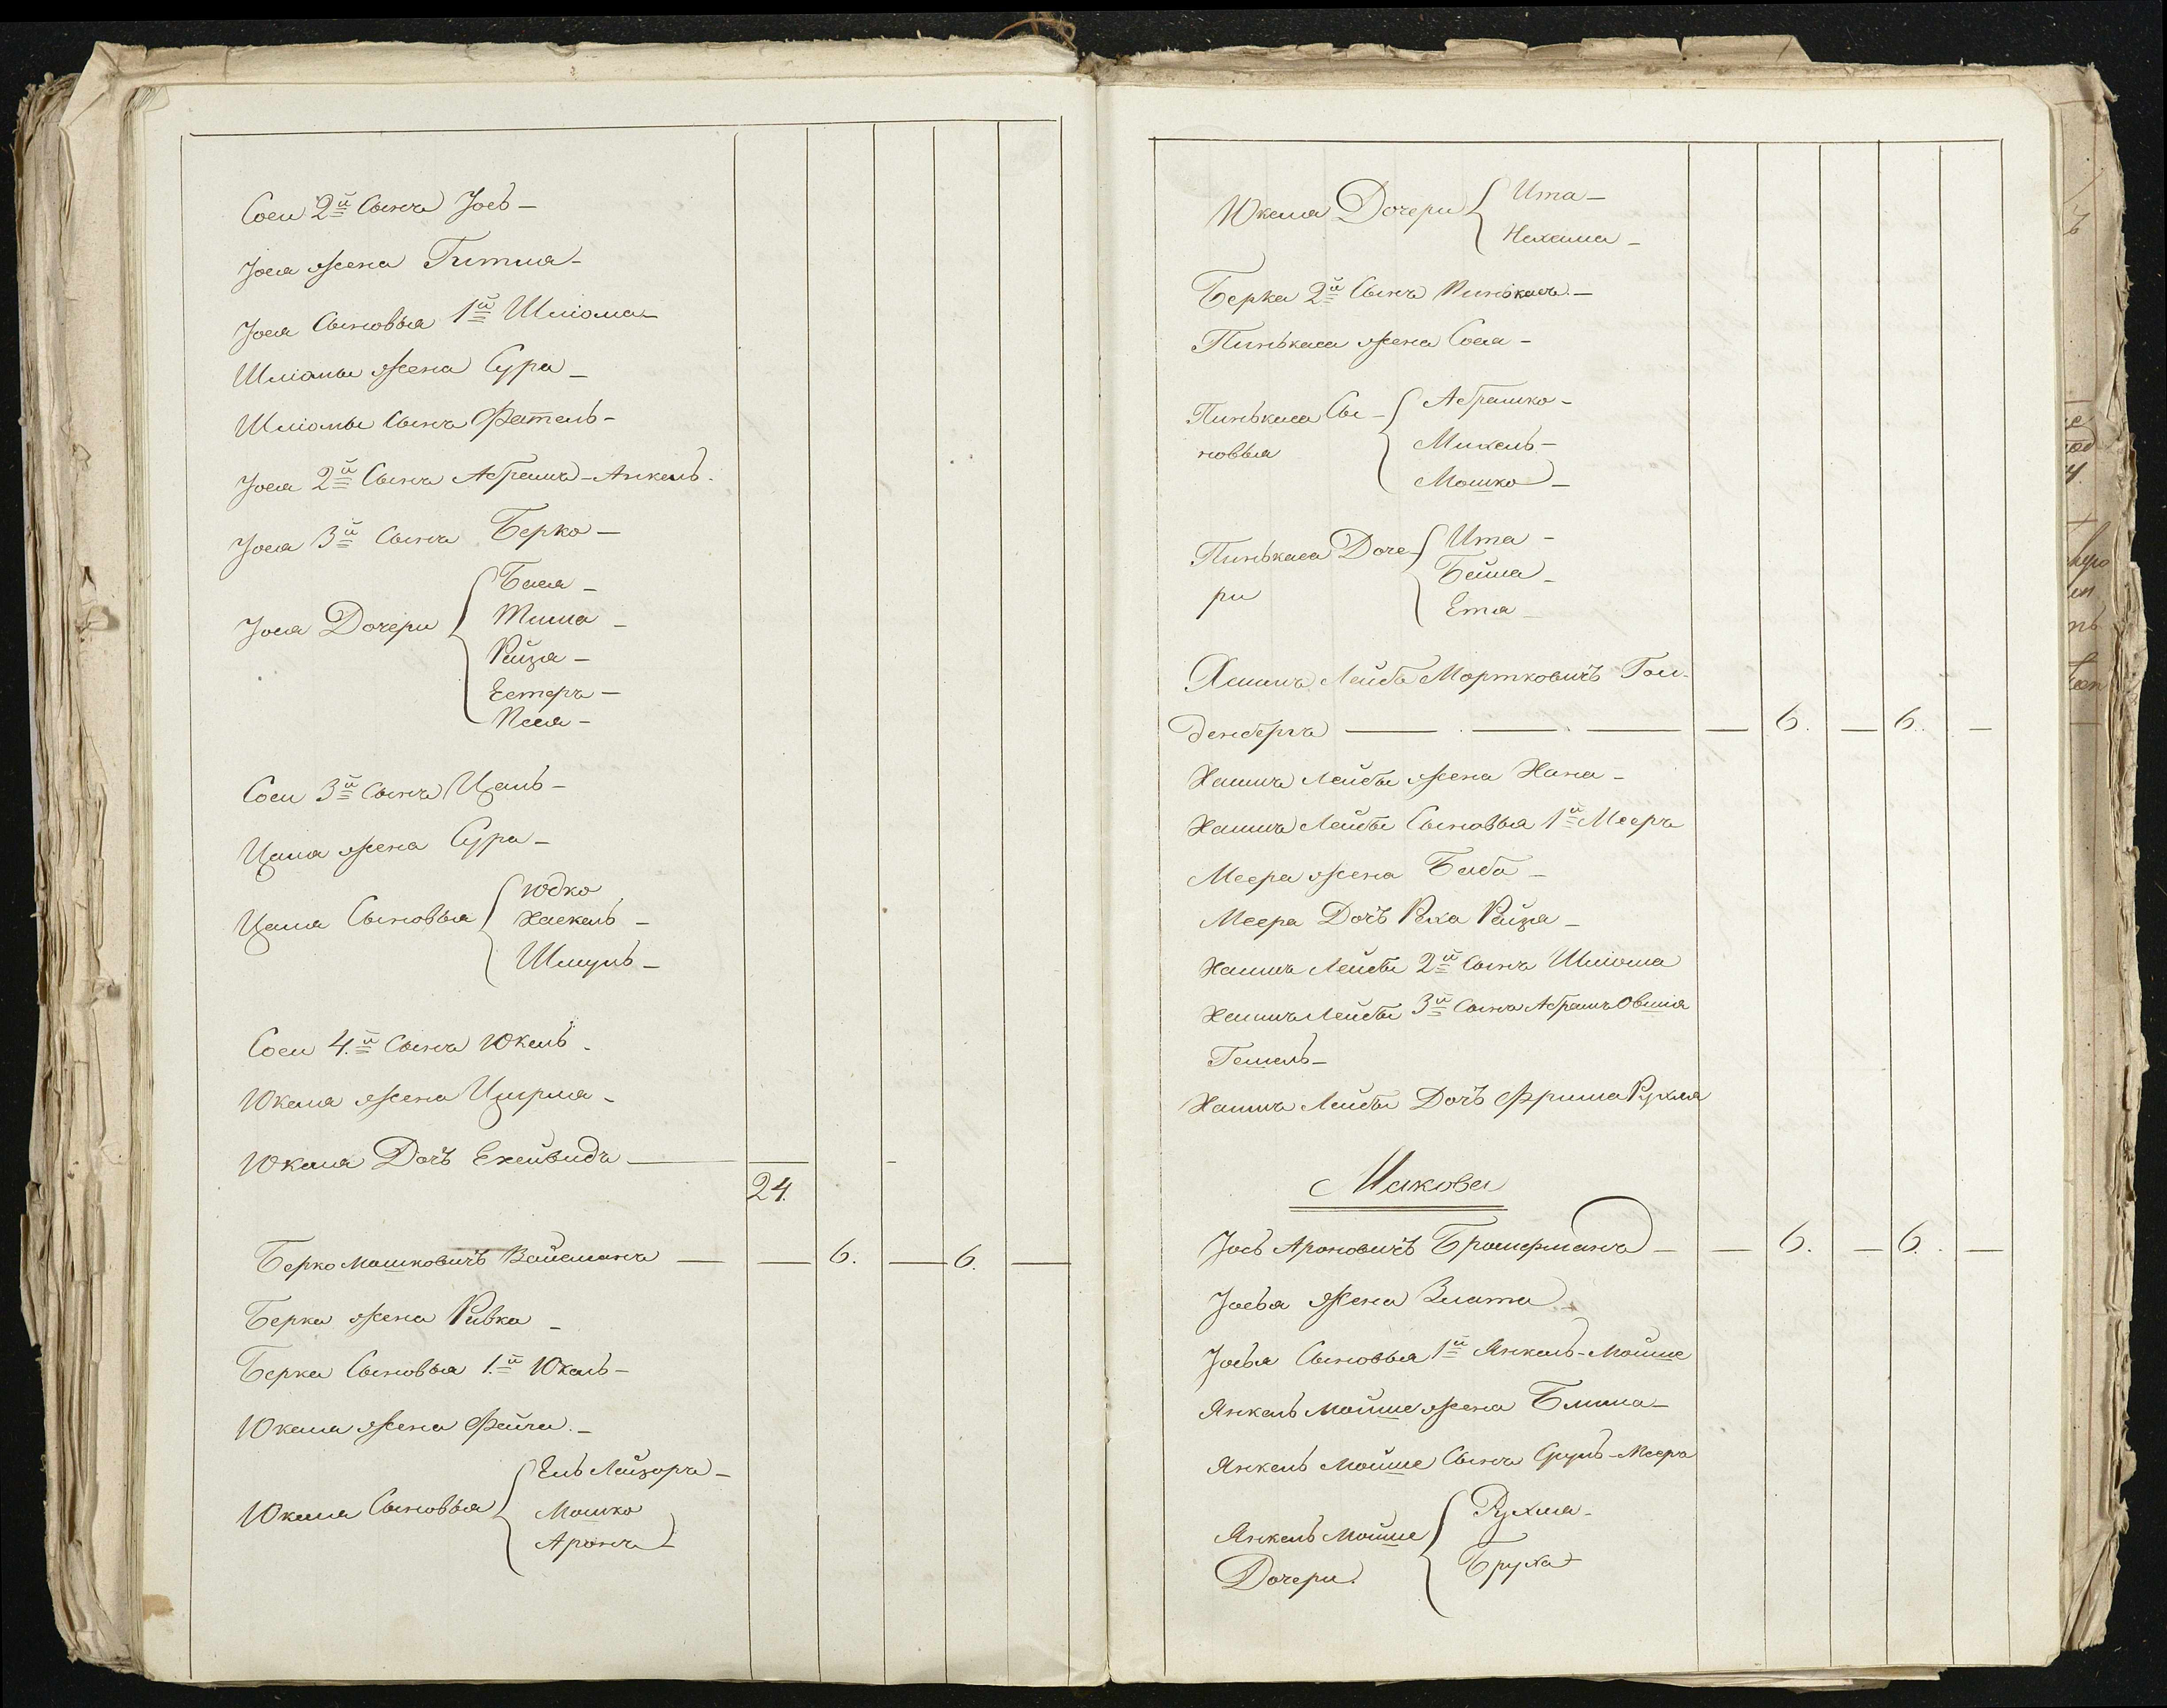 Соси 2й Сынъ Іось —
Іося жена Гитля —
Іося Сыновья 1й Шліома —
Шліомы жена Сура —
Шліомы Сынъ Фатель —
Іося 2й Сынъ Абрамъ-Анкель.
Іося 3й Сынъ Берко —
Іося Дочери
Бася —
Тиша —
Рейза —
Естеръ —
Песя —
Соси 3й Сынъ Цаль —
Цаля жена Сура —
Цаля Сыновья
Юдко
Хаскель —
Шмуль —
Соси 4.й Сынъ Юкель —
Юкеля жена Цирля —
Юкеля Дочь Ехейвидъ —
24.
Берко Мошковичъ Вайсманъ — — 6. — 6. —
Берка жена Ривка —
Берка Сыновья 1.й Юкель —
Юкеля жена Фейга. —
Юкеля Сыновья
Ель Лейзоръ —
Мошко
Аронъ —
Юкеля Дочери
Ита —
Нехама —
Берка 2й Сынъ Пинькасъ —
Пинькаса жена Сося —
Пинькаса Сы-
новья
Абрашко —
Михель —
Мошко —
Пинькаса Доче-
ри
Ита —
Бейла —
Етя —
Хаимъ Лейба Мортковичъ Гол-
денбергъ — — — — 6. — 6. —
Хаимъ Лейбы жена Хана —
Хаимъ Лейбы Сыновья 1й Мееръ
Меера жена Баба —
Меера Дочь Раха Рейза —
Хаимъ Лейбы 2й Сынъ Шліома
Хаимъ Лейбы 3й Сынъ Абрамъ Овшія
Гешель —
Хаимъ Лейбы Дочь Фрима Рухля
Макова
Іось Ароновичъ Бронерманъ — — 6. — 6. —
Іося Жена Злата —
Іося Сыновья 1й Янкель-Мойше
Янкель Мойше жена Блима —
Янкель Мойше Сынъ Сруль-Мееръ
Янкель Мойше
Дочери.
Рухля —
Бруха —